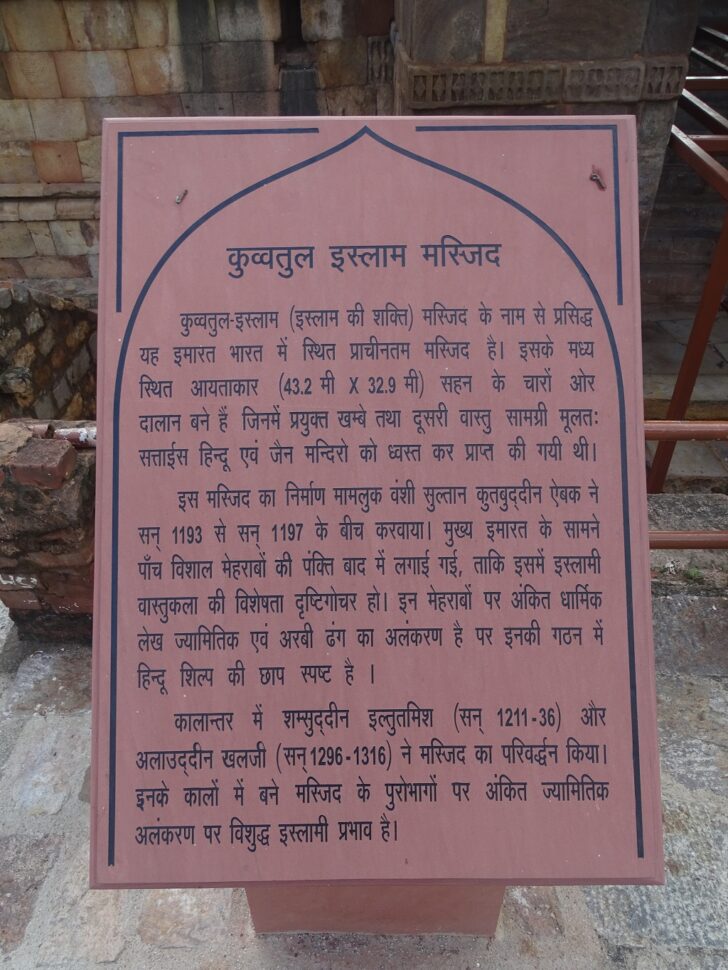 कुव्वतुल इस्लाम मस्जिद
कुव्वतुल-इस्लाम (इस्लाम की शक्ति) मस्जिद के नाम से प्रसिद्ध
यह इमारत भारत में स्थित प्राचीनतम मस्जिद है। इसके मध्य
स्थित आयताकार (43.2 मी X 32.9 मी) सहन के चारों ओर
दालान बने हैं जिनमें प्रयुक्त खम्बे तथा दूसरी वास्तु सामग्री मूलतः
सत्ताईस हिन्दू एवं जैन मन्दिरो को ध्वस्त कर प्राप्त की गयी थी।
इस मस्जिद का निर्माण मामलुक वंशी सुल्तान कुतबुद्दीन ऐबक ने
सन् 1193 से सन् 1197 के बीच करवाया। मुख्य इमारत के सामने
पाँच विशाल मेहराबों की पंक्ति बाद में लगाई गई, ताकि इसमें इस्लामी
वास्तुकला की विशेषता दृष्टिगोचर हो। इन मेहराबों पर अंकित धार्मिक
लेख ज्यामितिक एवं अरबी ढंग का अलंकरण है पर इनकी गठन में
हिन्दू शिल्प की छाप स्पष्ट है ।
कालान्तर में शम्सुद्दीन इल्तुतमिश (सन् 1211-36) और
अलाउद्दीन खलजी (सन् 1296-1316) ने मस्जिद का परिवर्द्धन किया।
इनके कालों में बने मस्जिद के पुरोभागों पर अंकित ज्यामितिक
अलंकरण पर विशुद्ध इस्लामी प्रभाव है।